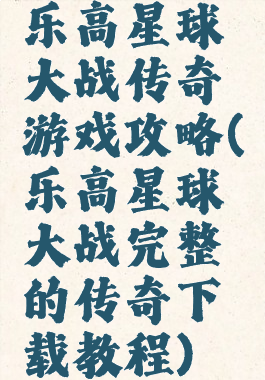 乐高星球
大战传奇
游戏攻略(
乐高星球
大战完整
的传奇下
载教程)